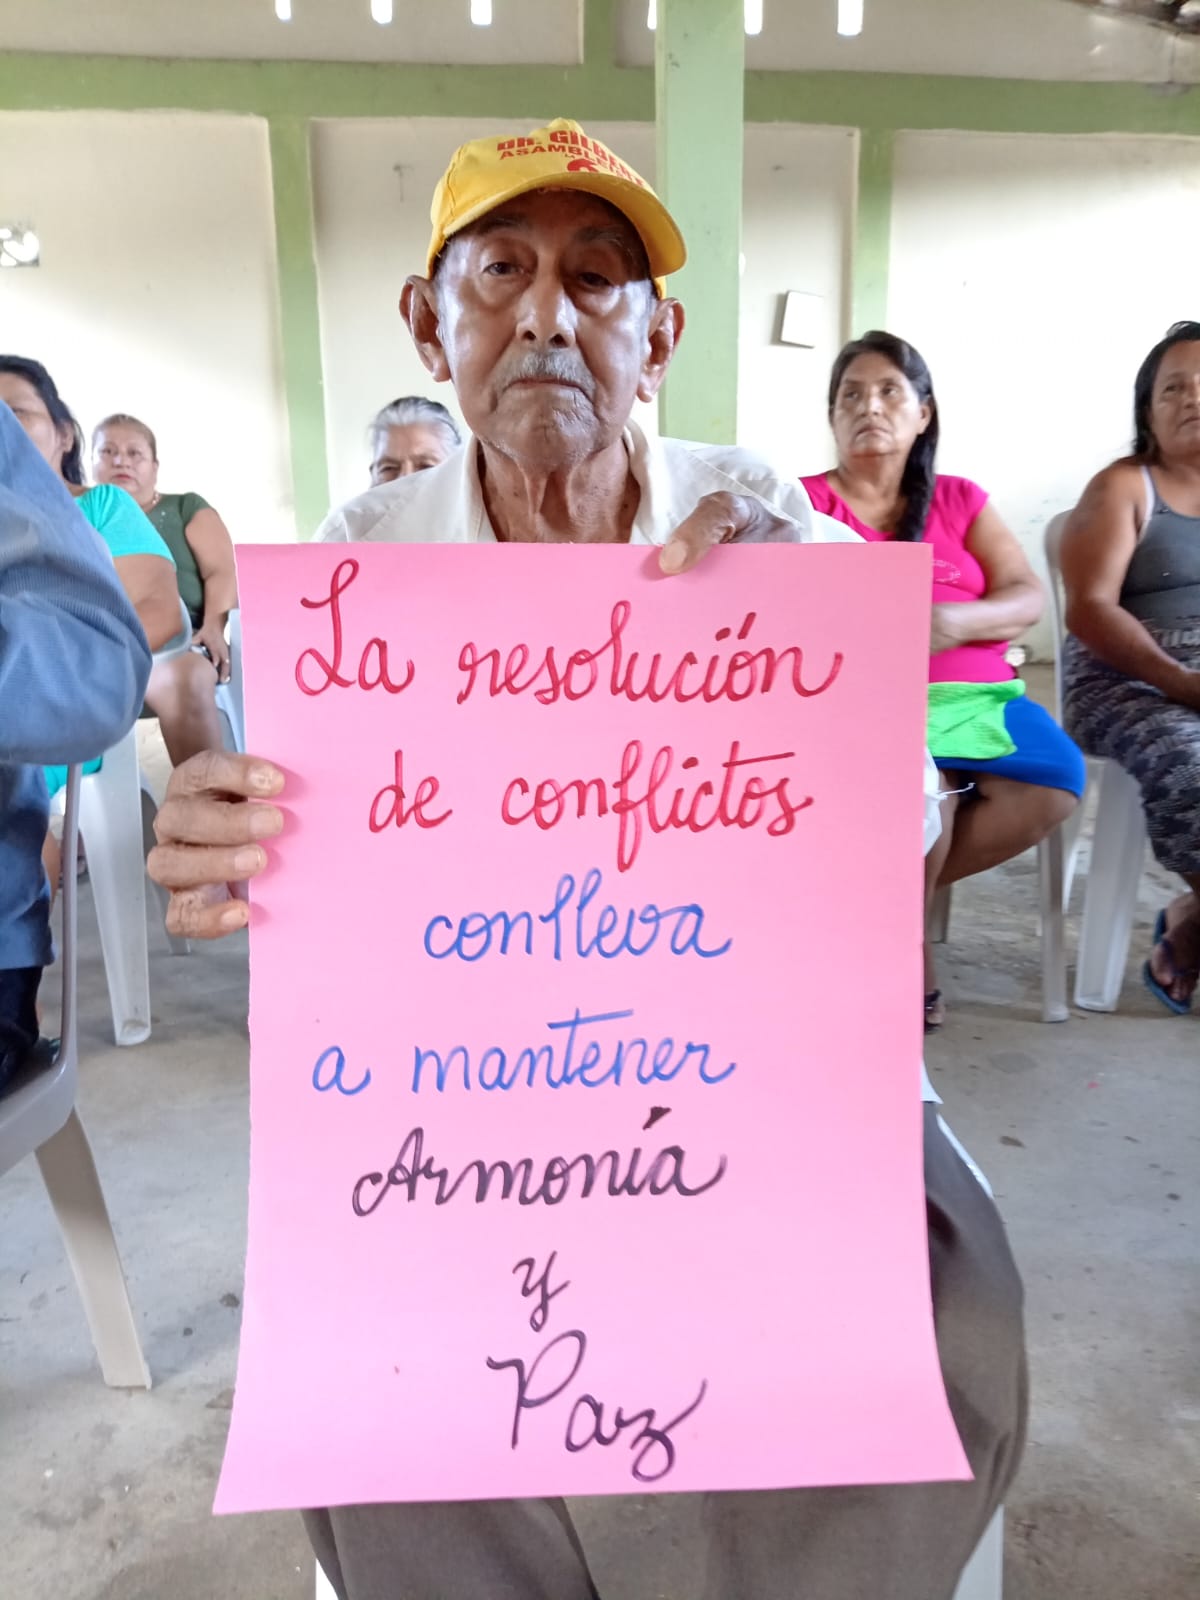 DR. GILBER
ASAMBLE
La resolución
de conflictos
conlleva
a mantener
Armonía
y
Paz